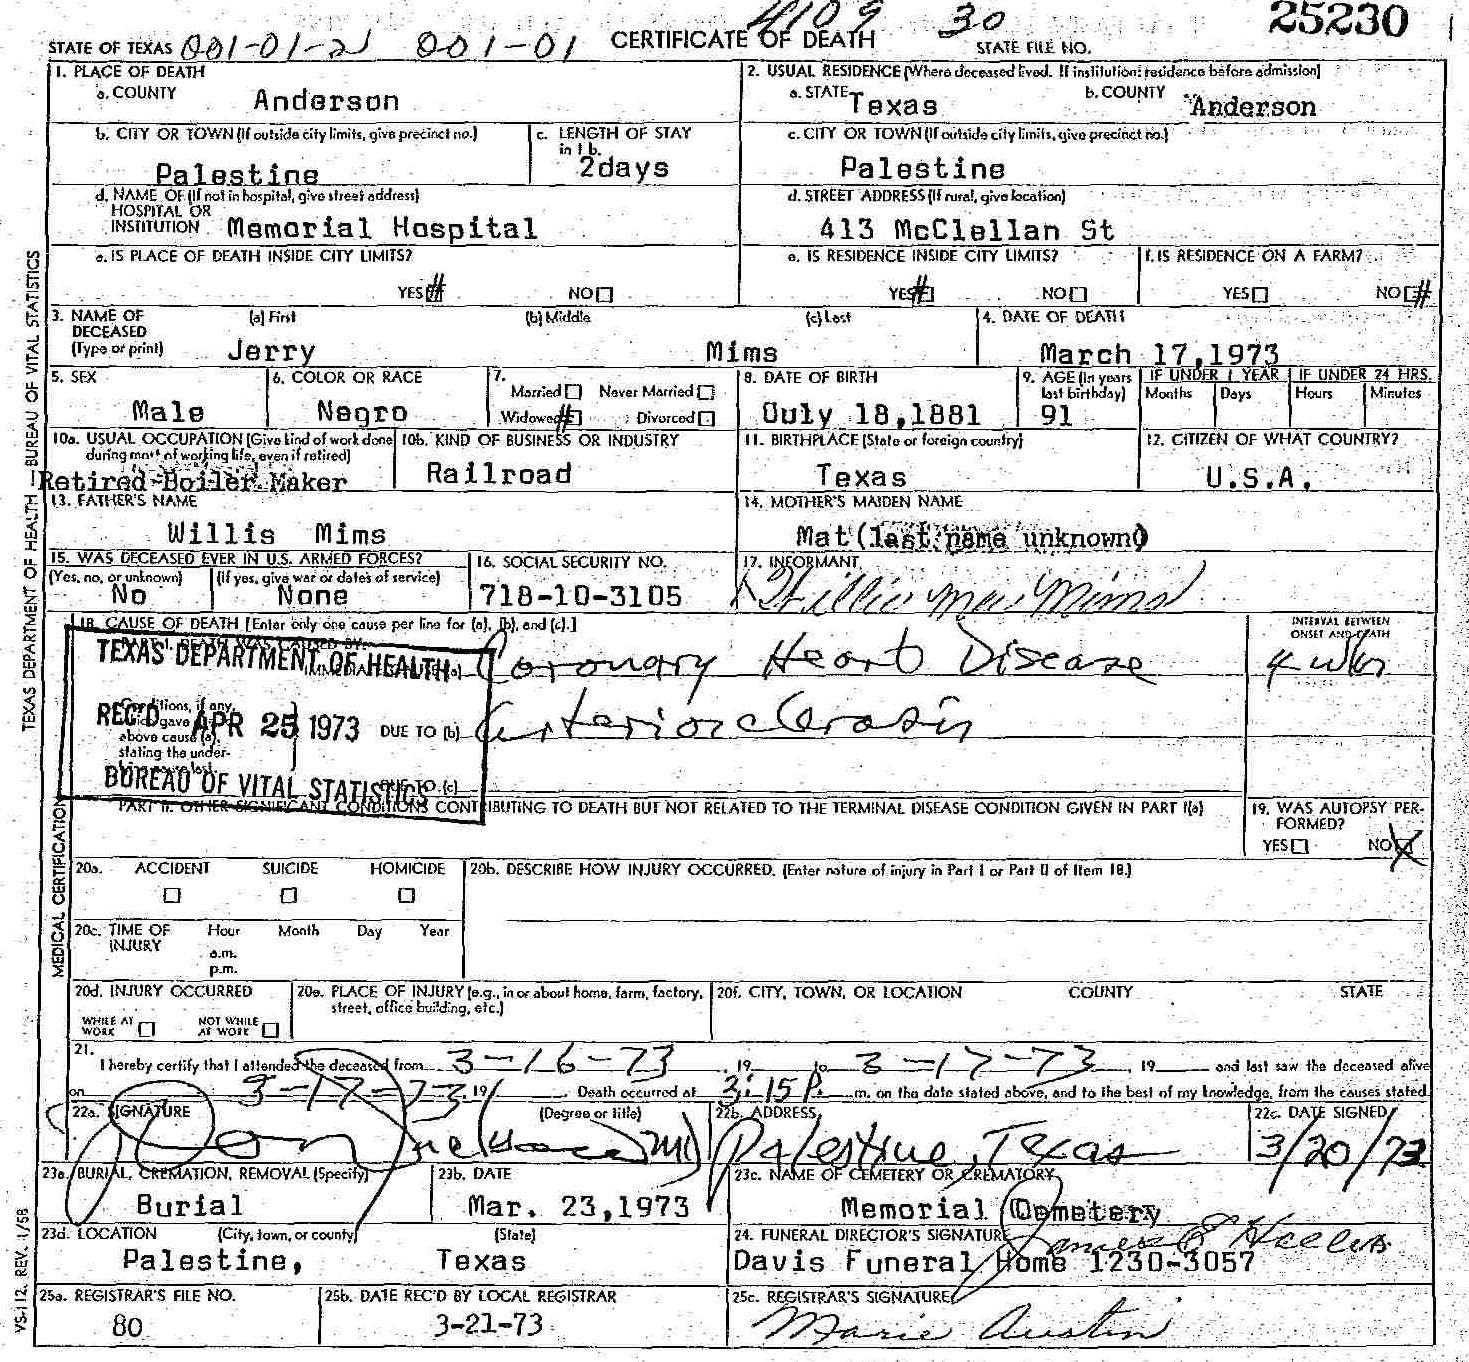 4109 30 25230
STATE OF TEXAS 001-01-21 001-01 CERTIFICATE OF DEATH STATE FILE NO.
1. PLACE OF DEATH
a. COUNTY Anderson
2. USUAL RESIDENCE (Where deceased lived. If institution: residence before admission)
a. STATE Texas b. COUNTY Anderson
b. CITY OR TOWN (If outside city limits, give precinct no.) Palestine
c. LENGTH OF STAY in 1b. 2days
c. CITY OR TOWN (If outside city limits, give precinct no.) Palestine
d. NAME OF (If not in hospital, give street address) HOSPITAL OR INSTITUTION Memorial Hospital
d. STREET ADDRESS (If rural, give location) 413 McClellan St
e. IS PLACE OF DEATH INSIDE CITY LIMITS? YES # NO
e. IS RESIDENCE INSIDE CITY LIMITS? YES # NO
f. IS RESIDENCE ON A FARM? YES NO #
3. NAME OF DECEASED (Type or print) (a) First Jerry (b) Middle (c) Last Mims
4. DATE OF DEATH March 17,1973
5. SEX Male
6. COLOR OR RACE Negro
7. Married Never Married Widowed # Divorced
8. DATE OF BIRTH July 18,1881
9. AGE (In years last birthday) 91
IF UNDER 1 YEAR Months Days
IF UNDER 24 HRS. Hours Minutes
10a. USUAL OCCUPATION (Give kind of work done during most of working life, even if retired) Retired-Boiler Maker
10b. KIND OF BUSINESS OR INDUSTRY Railroad
11. BIRTHPLACE (State or foreign country) Texas
12. CITIZEN OF WHAT COUNTRY? U.S.A.
13. FATHER'S NAME Willis Mims
14. MOTHER'S MAIDEN NAME Mat(last name unknown)
15. WAS DECEASED EVER IN U.S. ARMED FORCES? (Yes, no, or unknown) No (If yes, give war or dates of service) None
16. SOCIAL SECURITY NO. 718-10-3105
17. INFORMANT Willie Mae Mims
18. CAUSE OF DEATH [Enter only one cause per line for (a), (b), and (c).]
INTERVAL BETWEEN ONSET AND DEATH
PART I. DEATH WAS CAUSED BY:
IMMEDIATE CAUSE (a) Coronary Heart Disease 4 wks
Conditions, if any, which gave above cause (a), stating the under-
DUE TO (b) Arteriosclerosis
DUE TO (c)
TEXAS DEPARTMENT OF HEALTH
REC'D APR 25 1973
BUREAU OF VITAL STATISTICS
PART II. OTHER SIGNIFICANT CONDITIONS CONTRIBUTING TO DEATH BUT NOT RELATED TO THE TERMINAL DISEASE CONDITION GIVEN IN PART I(a)
19. WAS AUTOPSY PERFORMED? YES NO X
20a. ACCIDENT SUICIDE HOMICIDE
20b. DESCRIBE HOW INJURY OCCURRED. (Enter nature of injury in Part I or Part II of Item 18.)
20c. TIME OF INJURY Hour Month Day Year
a.m.
p.m.
20d. INJURY OCCURRED WHILE AT WORK NOT WHILE AT WORK
20e. PLACE OF INJURY (e.g., in or about home, farm, factory, street, office building, etc.)
20f. CITY, TOWN, OR LOCATION COUNTY STATE
21. I hereby certify that I attended the deceased from 3-16-73, 19 to 3-17-73, 19 and last saw the deceased alive
on 3-17-73, 19 Death occurred at 3:15 P. m. on the date stated above, and to the best of my knowledge, from the causes stated
22a. SIGNATURE (Degree or title) MD
22b. ADDRESS Palestine, Texas
22c. DATE SIGNED 3/20/73
23a. BURIAL, CREMATION, REMOVAL (Specify) Burial
23b. DATE Mar. 23,1973
23c. NAME OF CEMETERY OR CREMATORY Memorial Cemetery
23d. LOCATION (City, town, or county) Palestine, (State) Texas
24. FUNERAL DIRECTOR'S SIGNATURE James E
Davis Funeral Home 1230-3057
25a. REGISTRAR'S FILE NO. 80
25b. DATE REC'D BY LOCAL REGISTRAR 3-21-73
25c. REGISTRAR'S SIGNATURE Marie Austin
TEXAS DEPARTMENT OF HEALTH—BUREAU OF VITAL STATISTICS
MEDICAL CERTIFICATION
VS-112, REV. 1/58